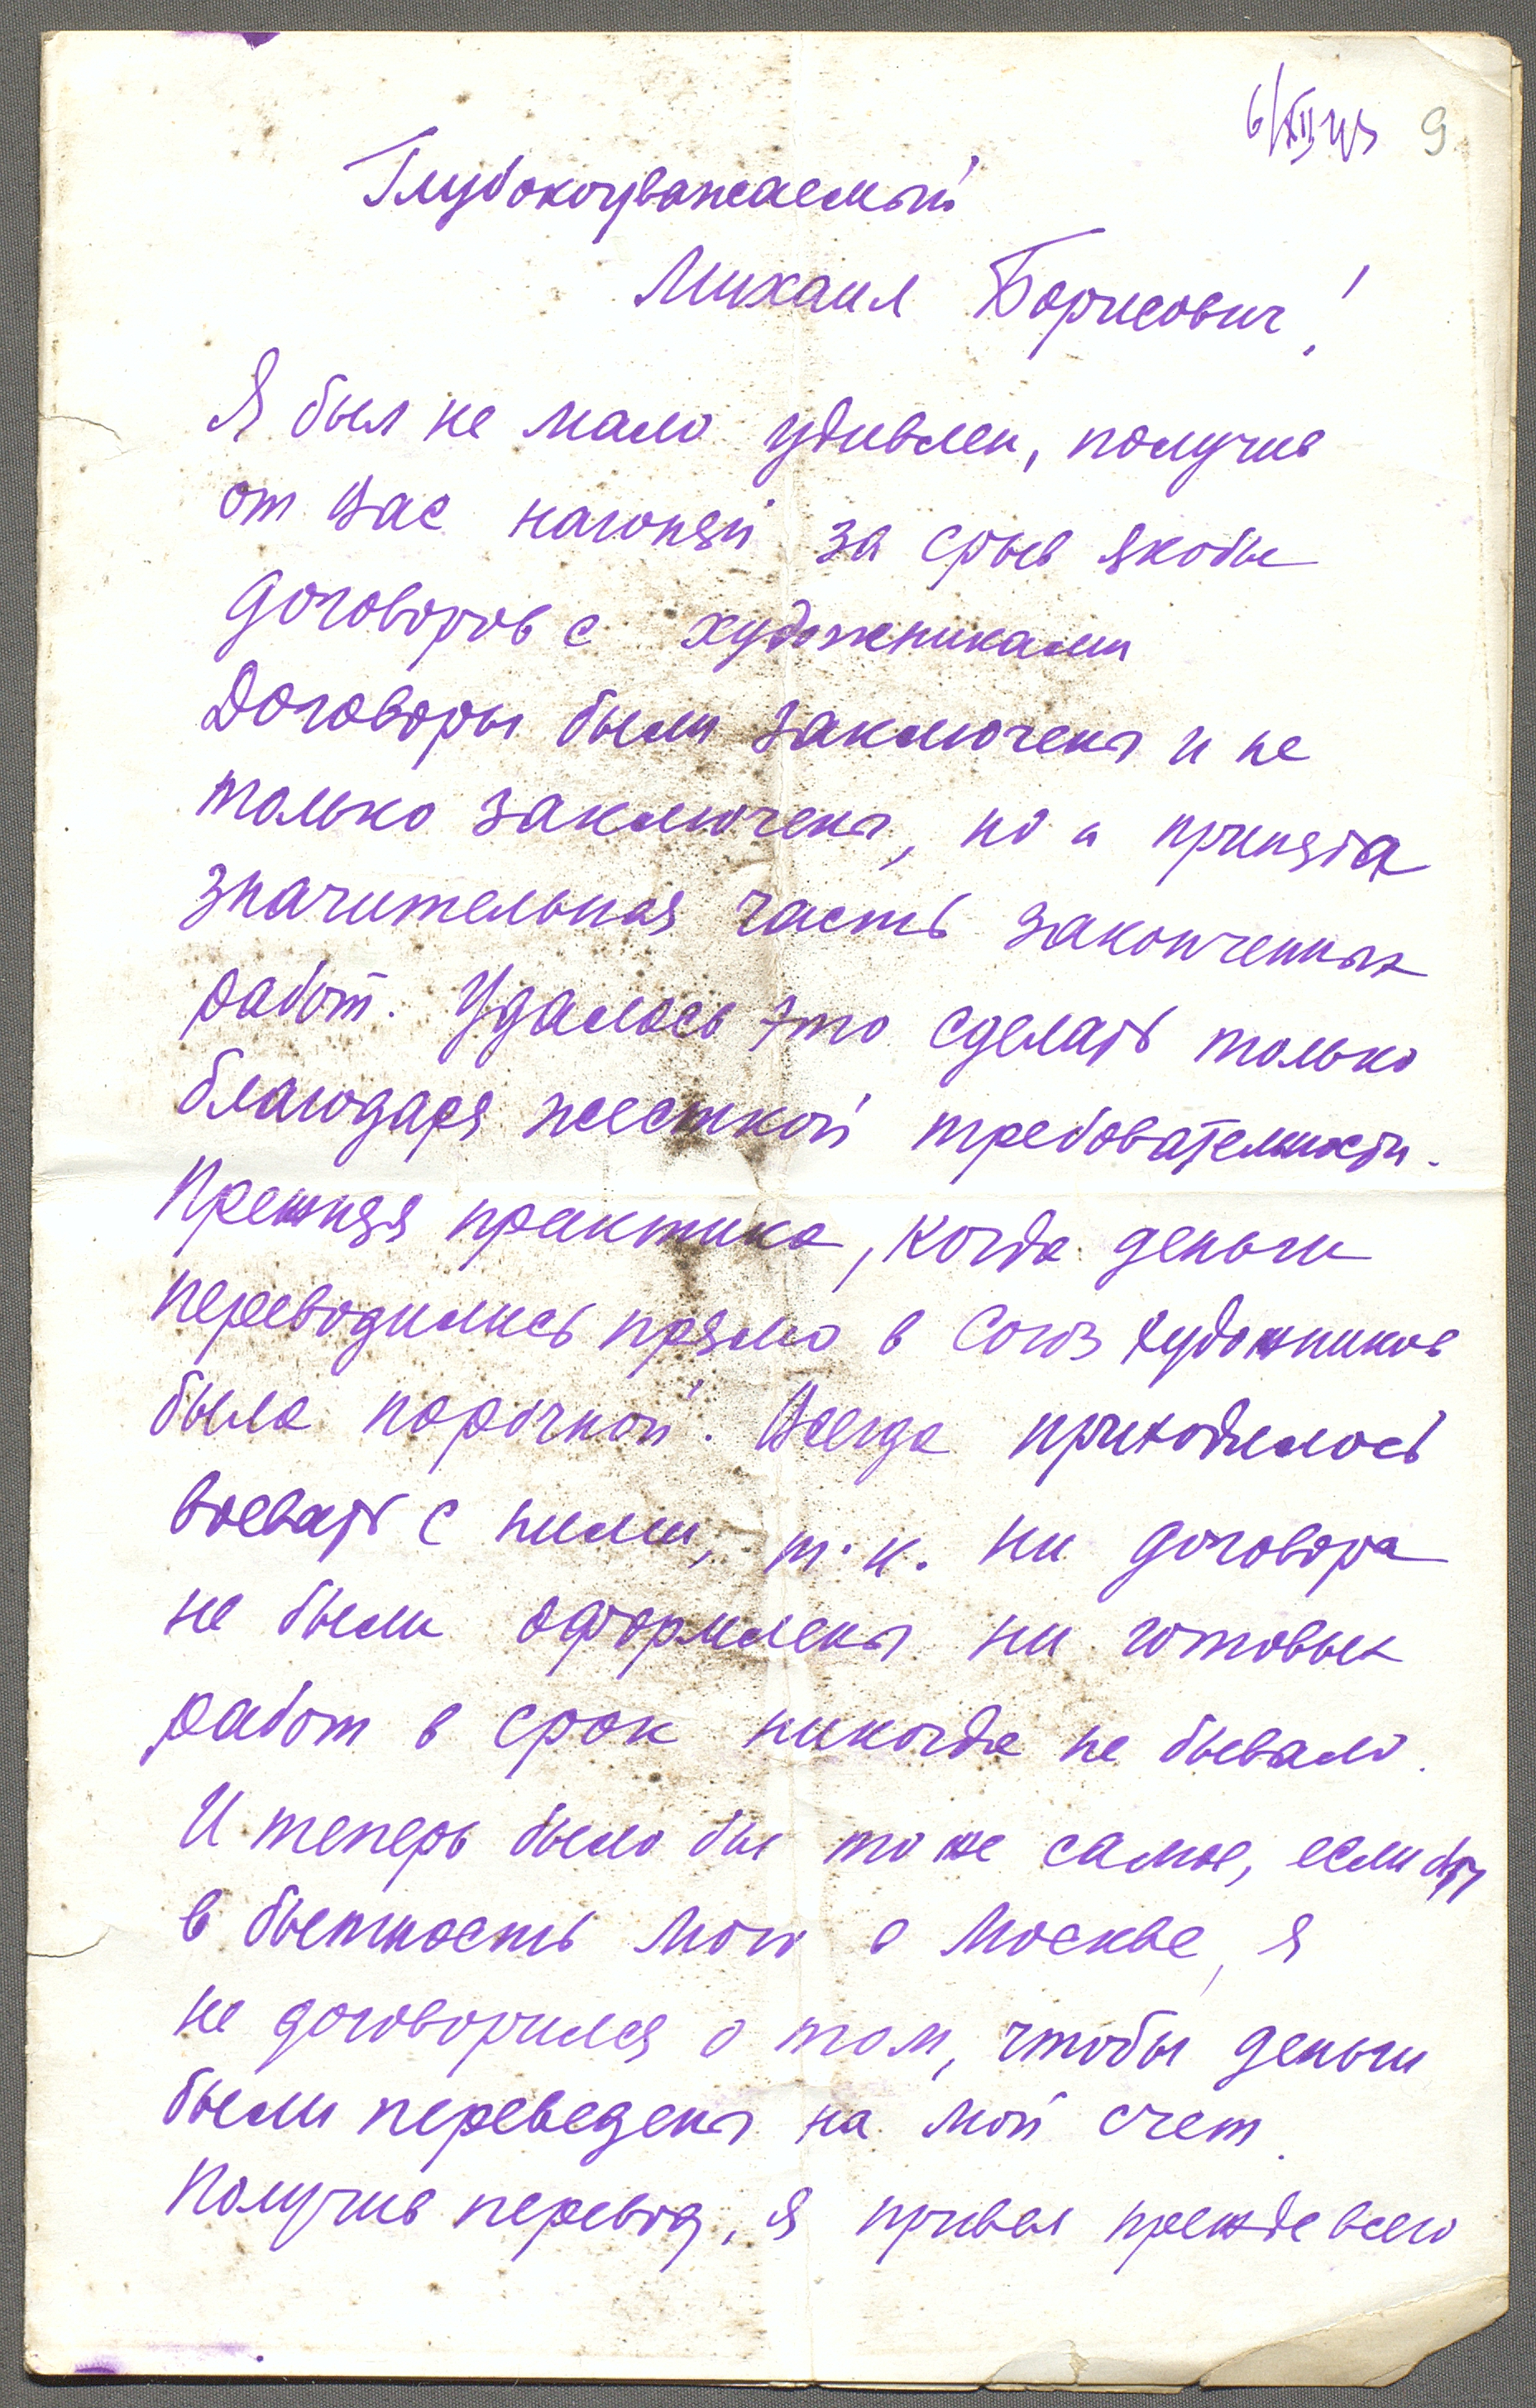 6/XII 43 9
Глубокоуважаемый
Михаил Борисович!
Я был не мало удивлен, получив
от Вас нагоняй за срыв якобы
договоров с художниками
Договоры были заключены и не
только заключены, но и принята
значительная часть законченных
работ. Удалось это сделать только
благодаря жесткой требовательности.
Прежняя практика, когда деньги
переводились прямо в Союз художников
была порочной. Всегда приходилось
воевать с ними, т.к. ни договора
не были оформлены ни готовых
работ в срок никогда не бывало.
И теперь было бы то же самое, если бы
в бытность мою в Москве, я
не договорился о том, чтобы деньги
были переведены на мой счет.
Получив перевод, я привел прежде всего